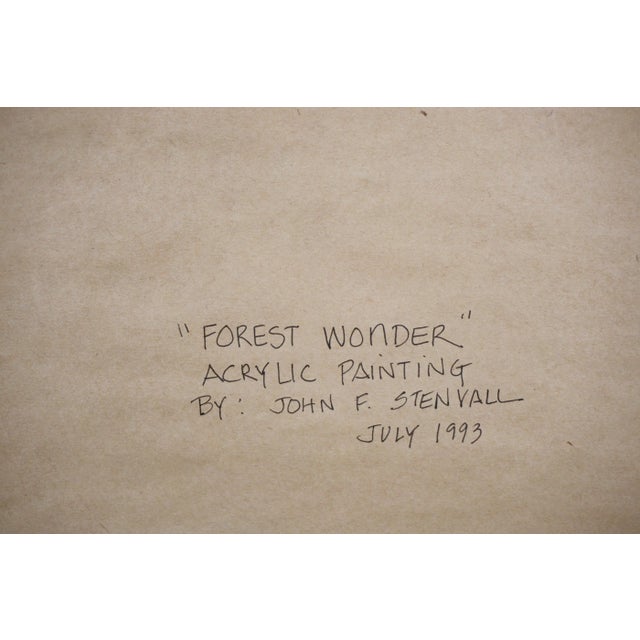 "FOREST WONDER"
ACRYLIC PAINTING
BY: JOHN F. STENVALL
JULY 1993